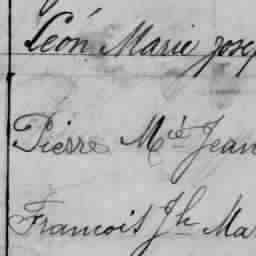 Léon Marie Josep
Pierre Mie Jean
Francois Jh Ma